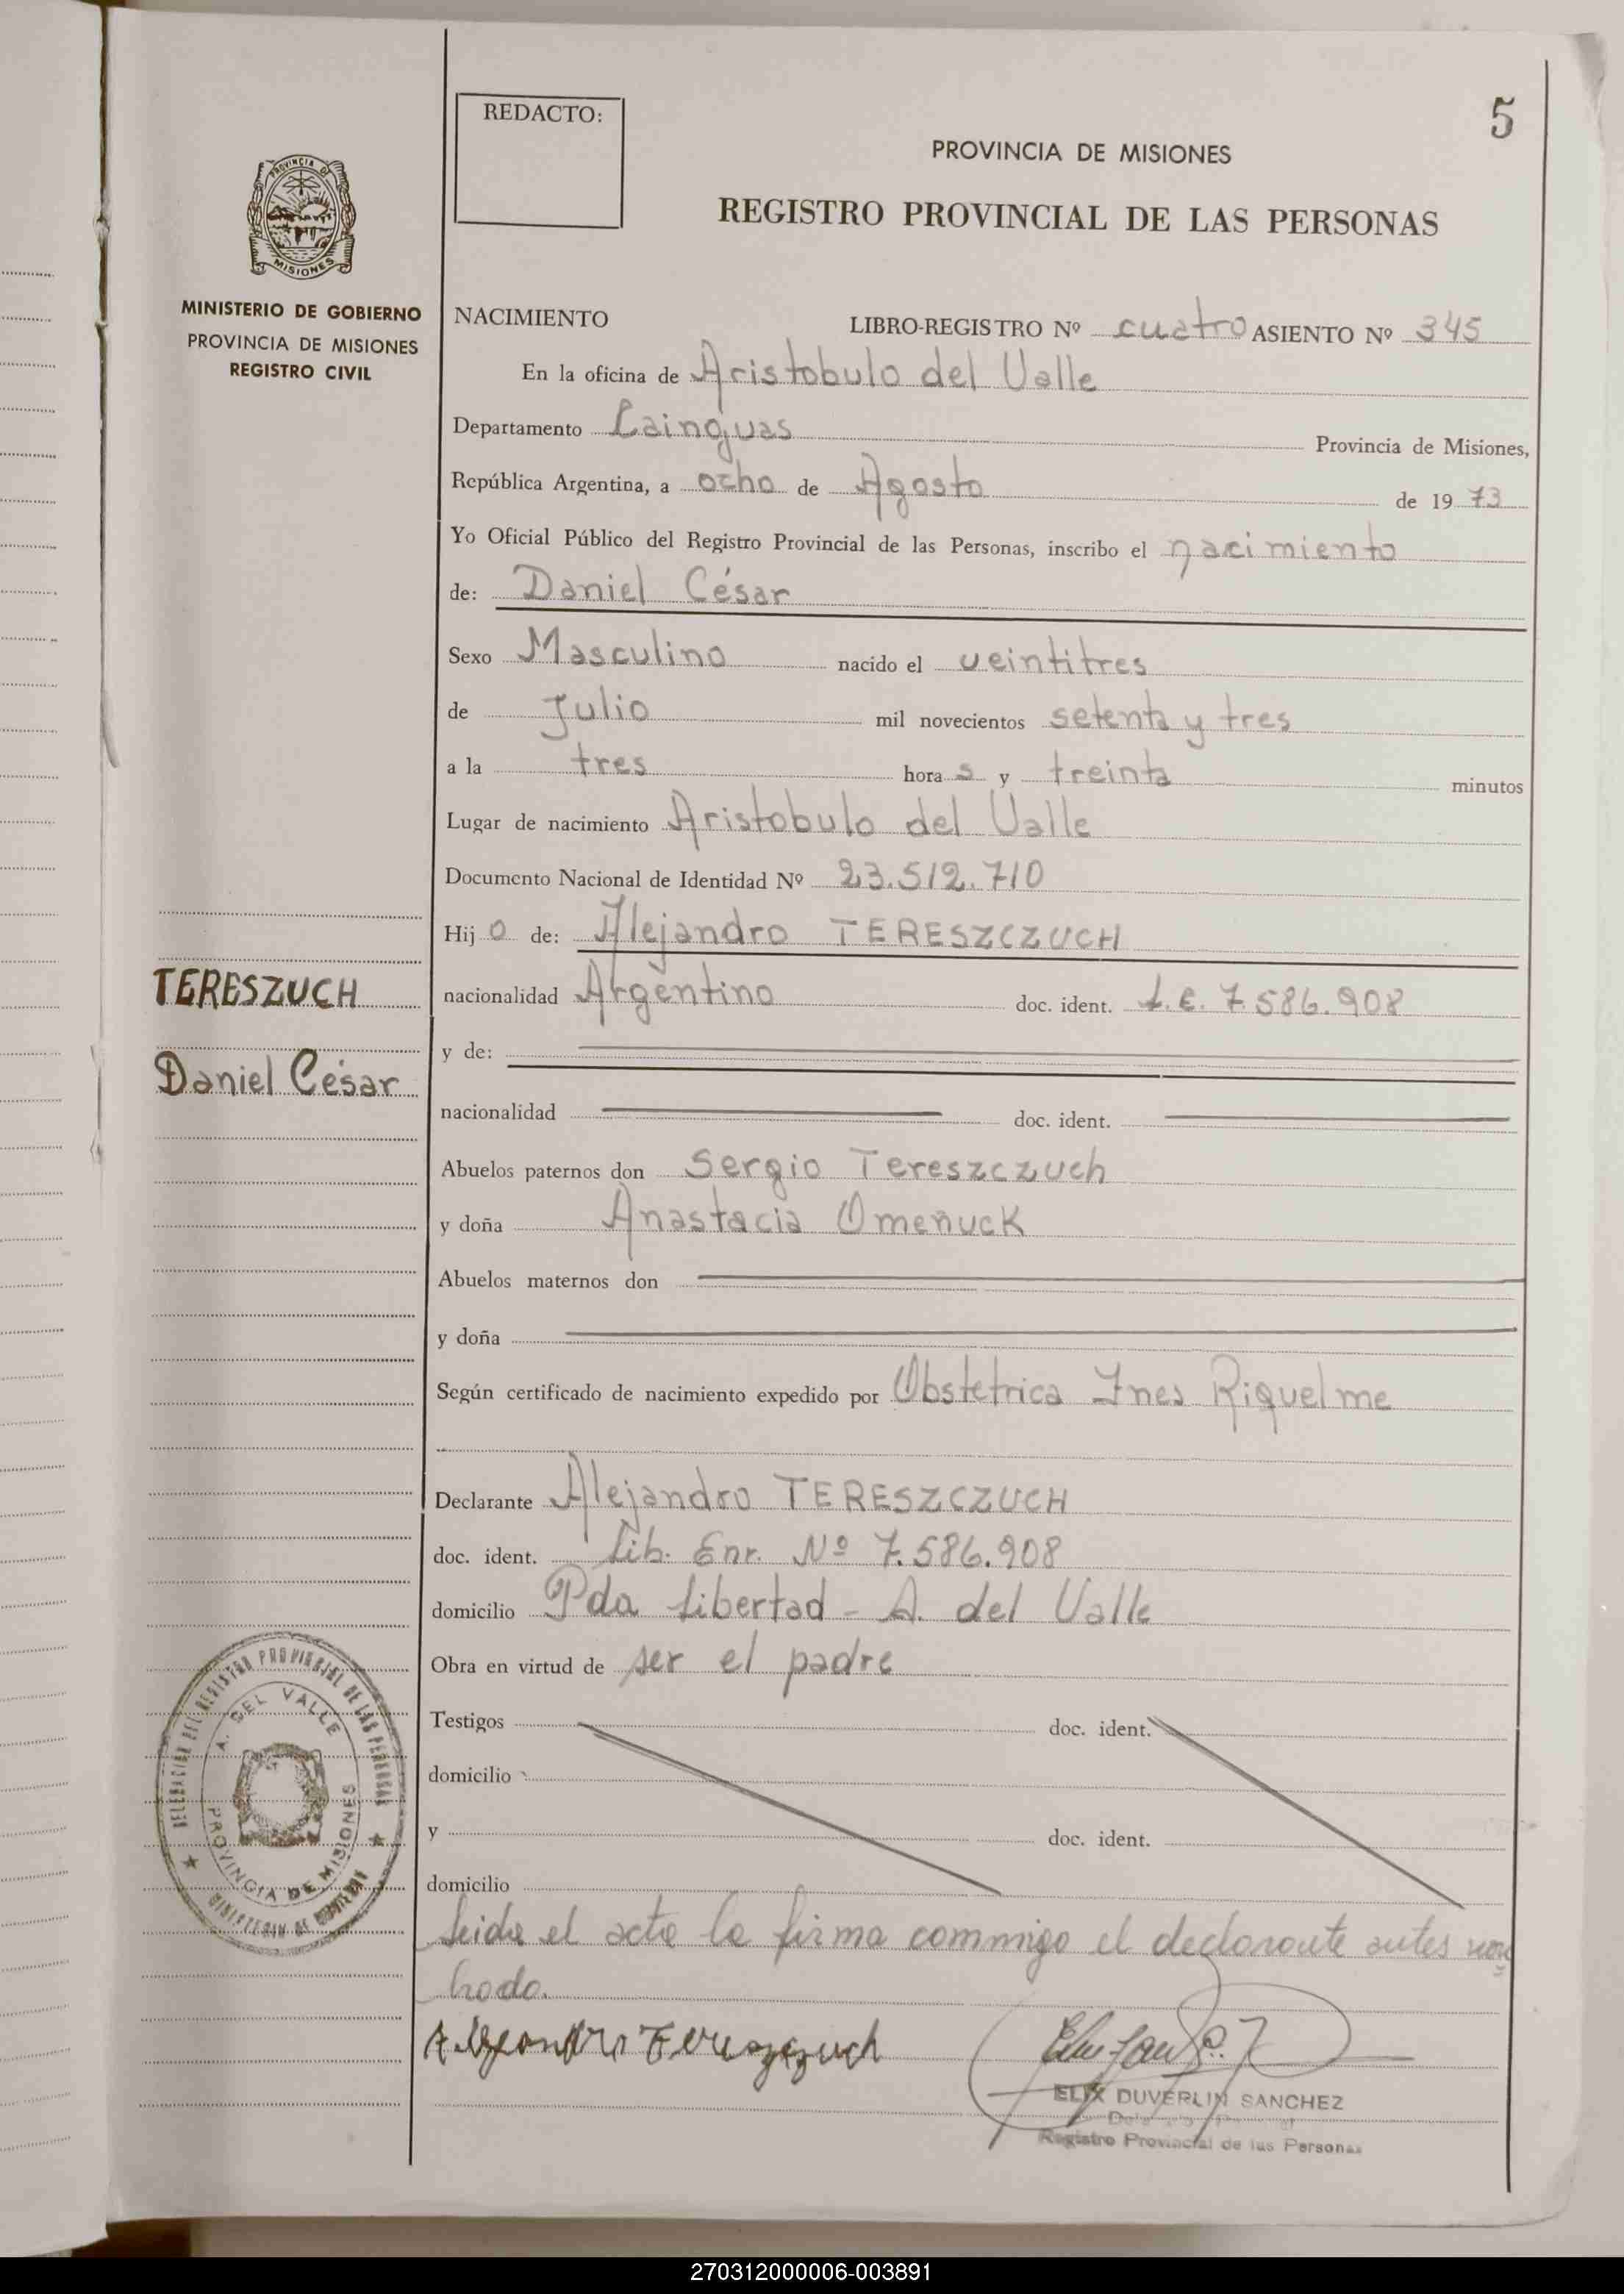 5
REDACTO:
PROVINCIA DE MISIONES
REGISTRO PROVINCIAL DE LAS PERSONAS
PROVINCIA DE
MISIONES
MINISTERIO DE GOBIERNO
PROVINCIA DE MISIONES
REGISTRO CIVIL
NACIMIENTO LIBRO-REGISTRO Nº cuatro ASIENTO Nº 345
En la oficina de Aristobulo del Valle
Departamento Cainguas Provincia de Misiones,
República Argentina, a ocho de Agosto de 1973
Yo Oficial Público del Registro Provincial de las Personas, inscribo el nacimiento
de: Daniel César
Sexo Masculino nacido el veintitres
de Julio mil novecientos setenta y tres
a la tres horas y treinta minutos
Lugar de nacimiento Aristobulo del Valle
Documento Nacional de Identidad Nº 23.512.710
Hijo de: Alejandro TERESZCZUCH
TERESZUCH
nacionalidad Argentino doc. ident. L.E. 7.586.908
y de:
Daniel César
nacionalidad doc. ident.
Abuelos paternos don Sergio Tereszczuch
y doña Anastacia Omeñuck
Abuelos maternos don
y doña
Según certificado de nacimiento expedido por Obstetrica Ines Riquelme
Declarante Alejandro TERESZCZUCH
doc. ident. Lib. Enr. Nº 7.586.908
domicilio Pda Libertad - A. del Valle
Obra en virtud de ser el padre
Testigos doc. ident.
domicilio
y doc. ident.
domicilio
DELEGACION DEL REGISTRO PROVINCIAL DE LAS PERSONAS
A. DEL VALLE
PROVINCIA DE MISIONES
MINISTERIO DE GOBIERNO
Leida el acta la firma commigo el declarante antes nom
brado.
Alejandro Tereszczuch
ELIX DUVERLIN SANCHEZ
Registro Provincial de las Personas
270312000006-003891